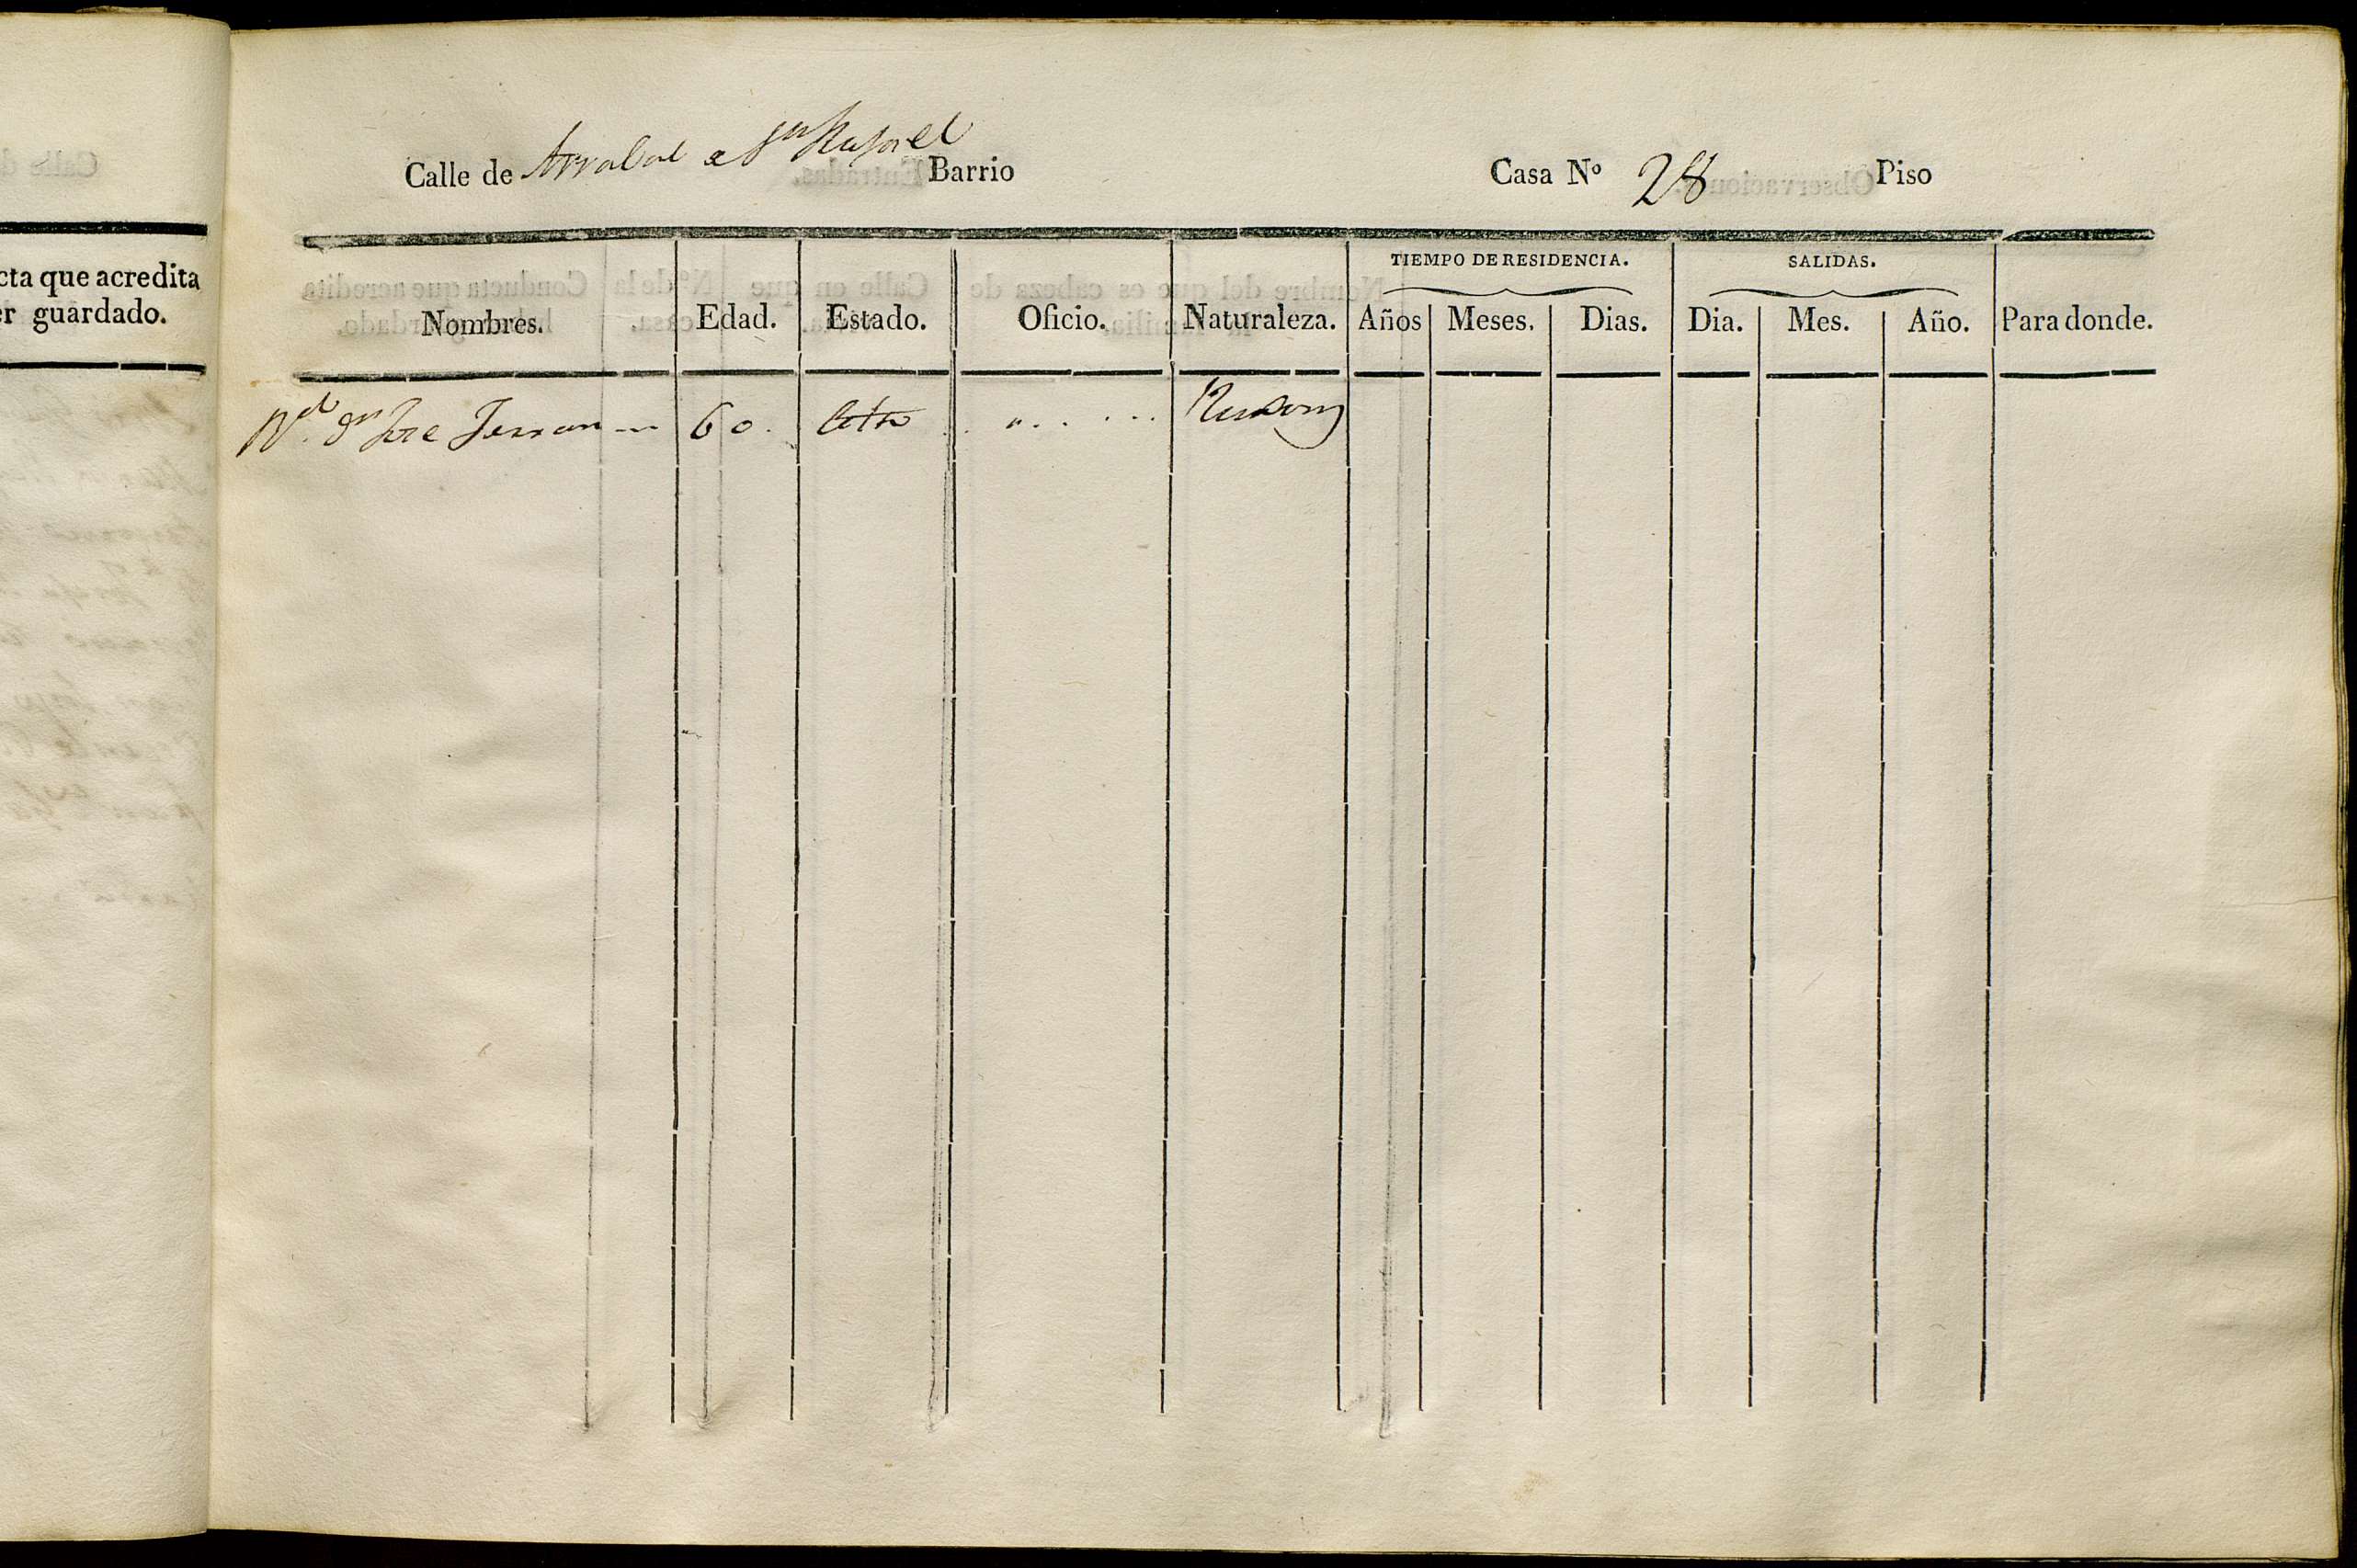 Calle de Arrabal a Sn Rafael Barrio Casa Nº 28 Piso
cta que acredita
er guardado.
TIEMPO DE RESIDENCIA. SALIDAS.
Nombres. Edad. Estado. Oficio. Naturaleza. Años Meses. Dias. Dia. Mes. Año. Para donde.
Dn Jose 60.